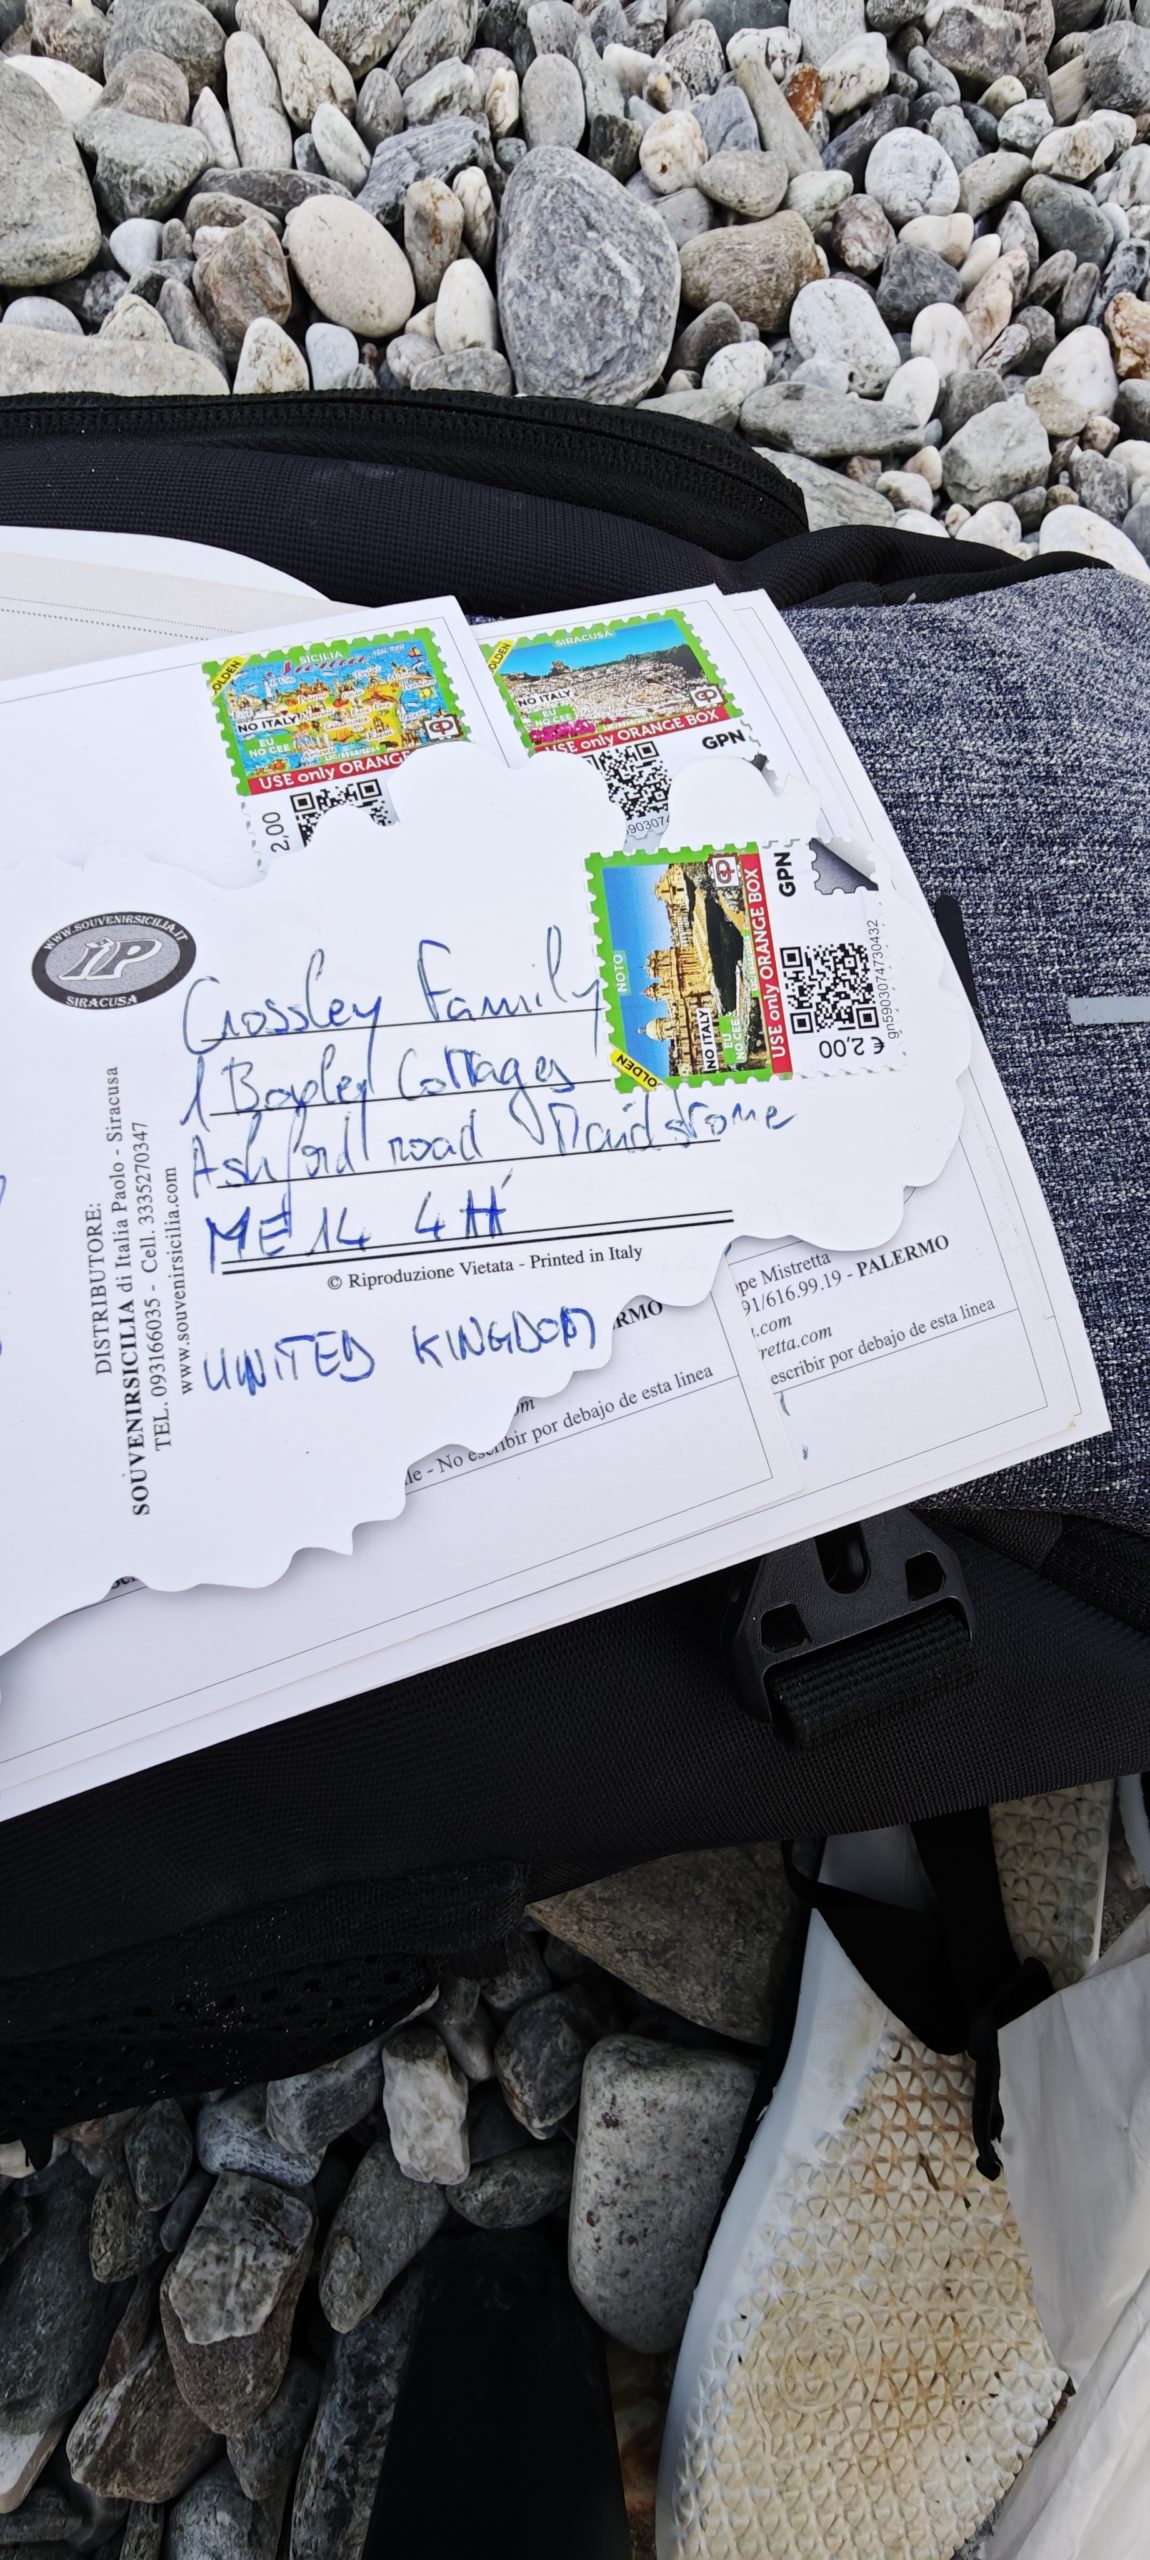 OLDEN
SICILIA
NO ITALY
EU
NO CEE
USE only ORANGE
2,00
OLDEN
SIRACUSA
NO ITALY
EU
NO CEE
USE only ORANGE BOX
GPN
NOTO
OLDEN
NO ITALY
EU
NO CEE
USE only ORANGE BOX
GPN
€ 2,00
gn5903074730432
WWW.SOUVENIRSICILIA.IT
iP
SIRACUSA
Crossley Family
1 Boxley Cottages
Ashford road Maidstone
ME14 4
© Riproduzione Vietata - Printed in Italy
UNITED KINGDOM
DISTRIBUTORE:
SOUVENIRSICILIA di Italia Paolo - Siracusa
TEL. 093166035 - Cell. 3335270347
www.souvenirsicilia.com
ppe Mistretta
91/616.99.19 - PALERMO
t.com
retta.com
escribir por debajo de esta linea
RMO
om
le - No escribir por debajo de esta linea